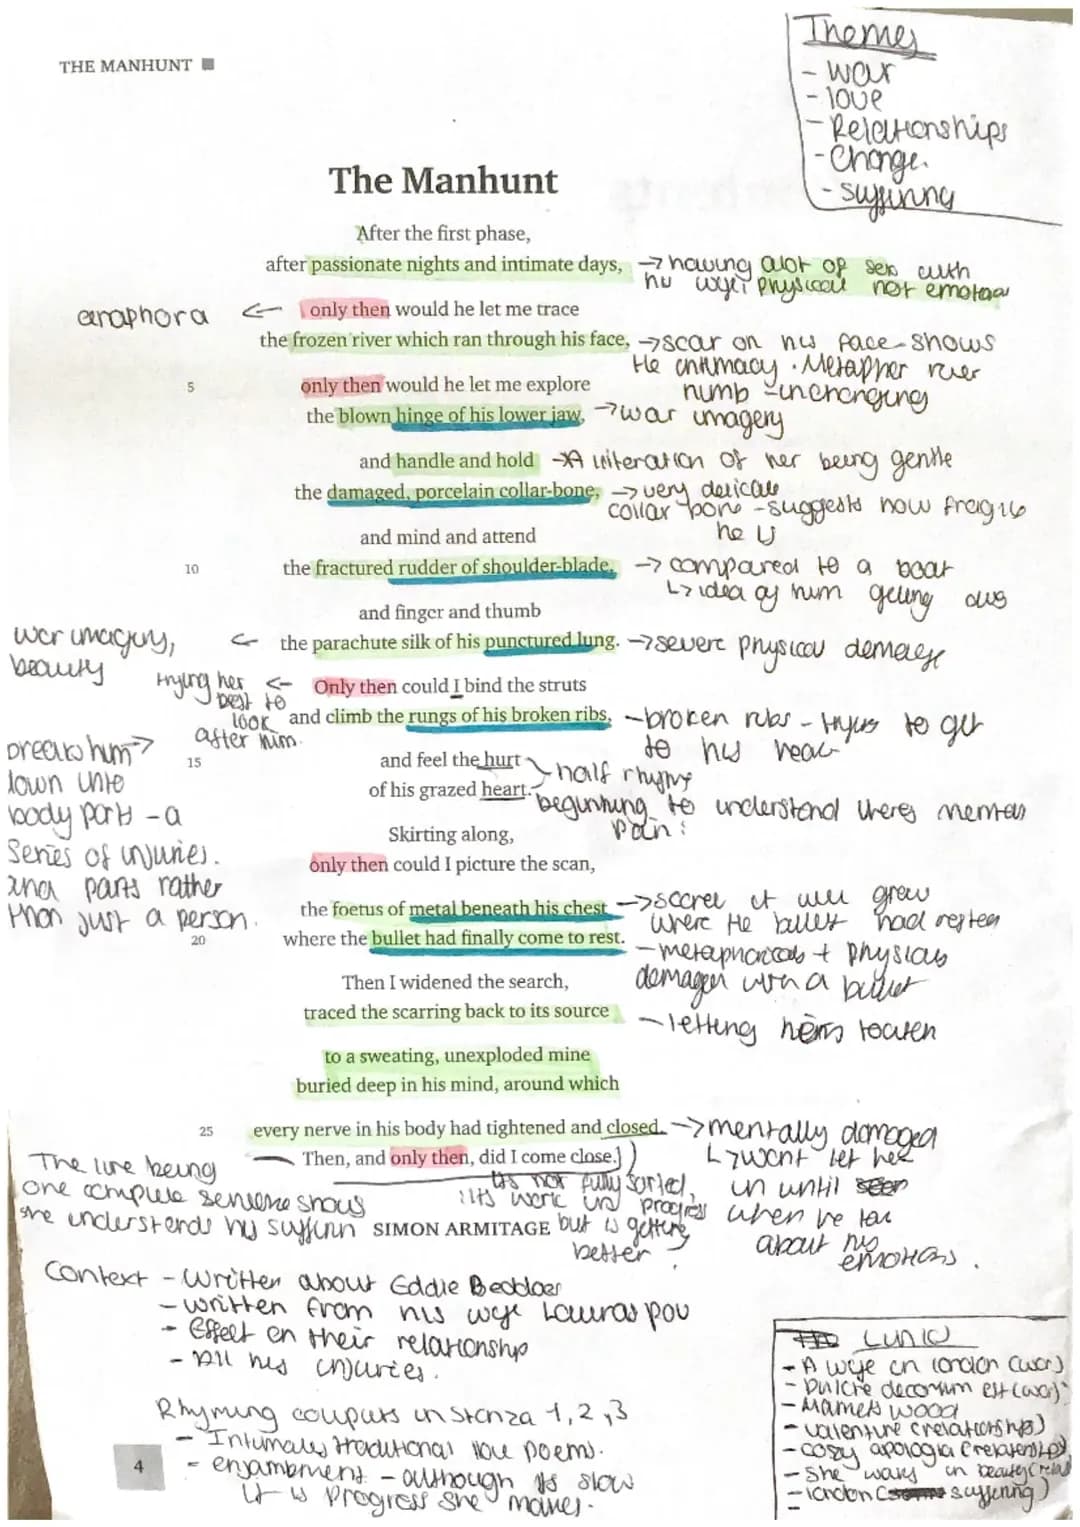 Themes
- war
- love
- Relationships
- Change.
- suffering
THE MANHUNT
The Manhunt
After the first phase,
after passionate nights and intimate days,
→ having alot of sex with
his wife physical not emotional
anaphora
only then would he let me trace
the frozen river which ran through his face,
→ scar on his face shows
the intimacy. Metaphor river
numb - unchanging
5
only then would he let me explore
the blown hinge of his lower jaw,
→ war imagery
and handle and hold
→ Aliteration of her being gentle
the damaged, porcelain collar-bone,
→ very delicate
collar bone - suggests how fragile
he is
and mind and attend
10
the fractured rudder of shoulder-blade,
→ compared to a boat
↳ idea of him
and finger and thumb
war imagury,
beauty
the parachute silk of his punctured lung.
→ severe physical damage
trying her
best to
look
after him.
Only then could I bind the struts
and climb the rungs of his broken ribs,
- broken ribs - trys to get
to his
breaks him
down into
body parts - a
series of injuries.
parts rather
than just a person.
15
and feel the hurt
of his grazed heart.
half rhyme
beginning to understand theres mental
pain.
Skirting along,
only then could I picture the scan,
the foetus of metal beneath his chest
→ scared it will grow
where the bullet had rested
20
where the bullet had finally come to rest.
- metaphorical + physical
damage with a bullet
Then I widened the search,
traced the scarring back to its source
- letting
to a sweating, unexploded mine
buried deep in his mind, around which
25
every nerve in his body had tightened and closed.
→ mentally damaged
↳ wont let her
in until
when he
about his
emotions.
Then, and only then, did I come close.
its not fully sorted,
its work in progress
but is getting
better
The line being
one complete sentence shows
she understands his
SIMON ARMITAGE
Context - Written about Eddie
- written from his wife Lauras pov
- Effect on their relationship
- All his injuries.
Rhyming couplets in Stanza 1,2,3
- Intimate, traditional love poems.
- enjambment - although its slow
it is progress she makes.
4
Links
- A wife in london (war)
- Dulce decorum est (war)
- Mametz wood
- valentine (relationships)
- cosy apologia (relationships)
- She walks in beauty
- london suffering)